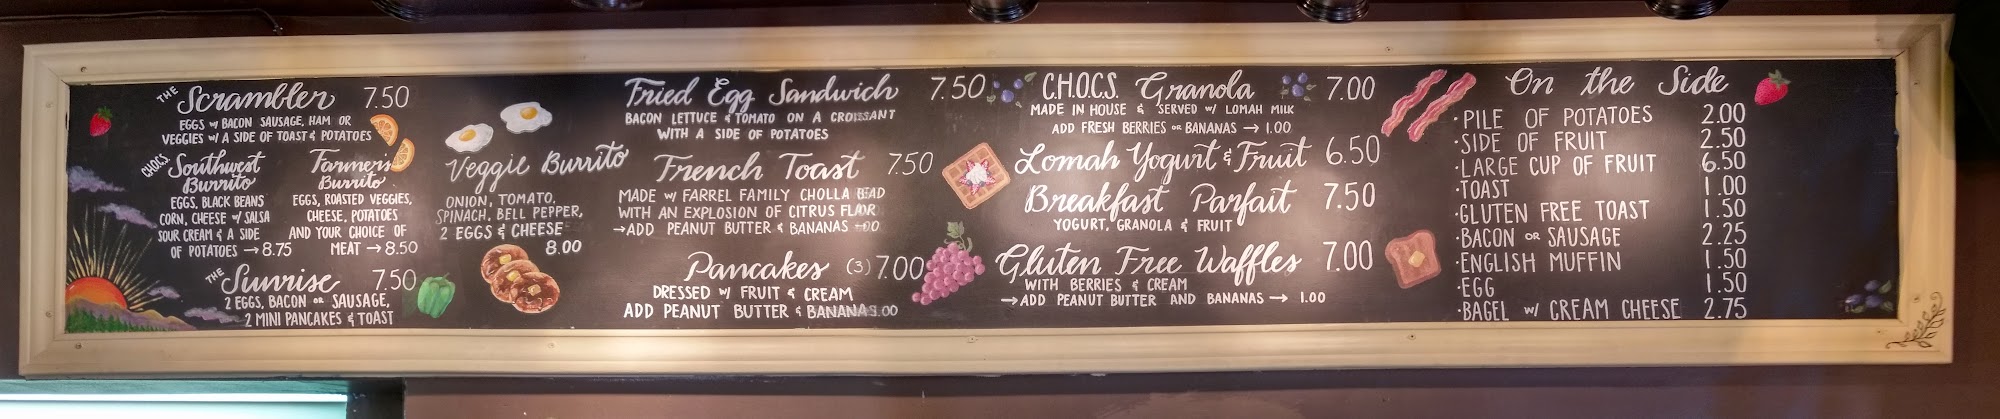 THE Scrambler 7.50
EGGS w/ BACON SAUSAGE, HAM OR
VEGGIES w/ A SIDE OF TOAST & POTATOES
CHOCS Southwest
Burrito
EGGS, BLACK BEANS
CORN, CHEESE w/ SALSA
SOUR CREAM & A SIDE
OF POTATOES → 8.75
Farmer's
Burrito
EGGS, ROASTED VEGGIES,
CHEESE, POTATOES
AND YOUR CHOICE OF
MEAT → 8.50
THE Sunrise 7.50
2 EGGS, BACON OR SAUSAGE,
2 MINI PANCAKES & TOAST
Veggie Burrito
ONION, TOMATO,
SPINACH, BELL PEPPER,
2 EGGS & CHEESE
8.00
Fried Egg Sandwich 7.50
BACON LETTUCE & TOMATO ON A CROISSANT
WITH A SIDE OF POTATOES
French Toast 7.50
MADE w/ FARREL FAMILY CHOLLA
WITH AN EXPLOSION OF CITRUS
→ADD PEANUT BUTTER & BANANAS
Pancakes (3) 7.00
DRESSED w/ FRUIT & CREAM
ADD PEANUT BUTTER & BANANAS 1.00
C.H.O.C.S. Granola 7.00
MADE IN HOUSE & SERVED w/ LOMAH MILK
ADD FRESH BERRIES OR BANANAS → 1.00
Lomah Yogurt & Fruit 6.50
Breakfast Parfait 7.50
YOGURT, GRANOLA & FRUIT
Gluten Free Waffles 7.00
WITH BERRIES & CREAM
→ADD PEANUT BUTTER AND BANANAS → 1.00
On the Side
·PILE OF POTATOES 2.00
·SIDE OF FRUIT 2.50
·LARGE CUP OF FRUIT 6.50
·TOAST 1.00
·GLUTEN FREE TOAST 1.50
·BACON OR SAUSAGE 2.25
·ENGLISH MUFFIN 1.50
·EGG 1.50
·BAGEL w/ CREAM CHEESE 2.75